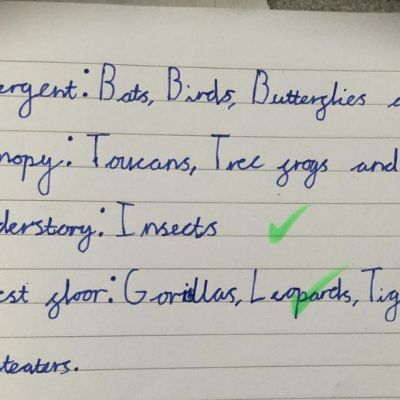 ergent: Bats, Birds, Butterflies a
nopy: Toucans, Tree frogs and
derstory: Insects
est floor: Gorillas, Leopards, Tig
teaters.